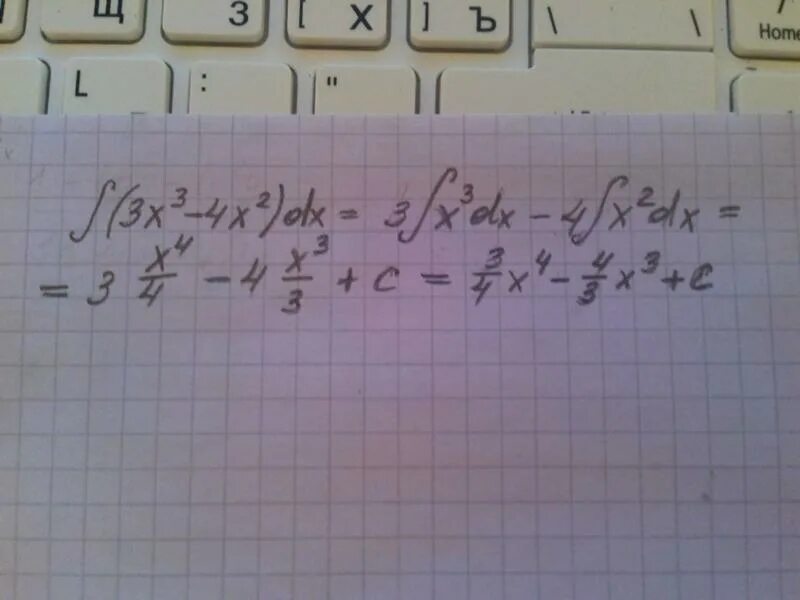 Щ З [ Х ] Ъ \ \ Home
L : "
∫(3x³-4x²)dx = 3∫x³dx - 4∫x²dx =
= 3 x⁴/4 - 4 x³/3 + C = 3/4 x⁴ - 4/3 x³ + C